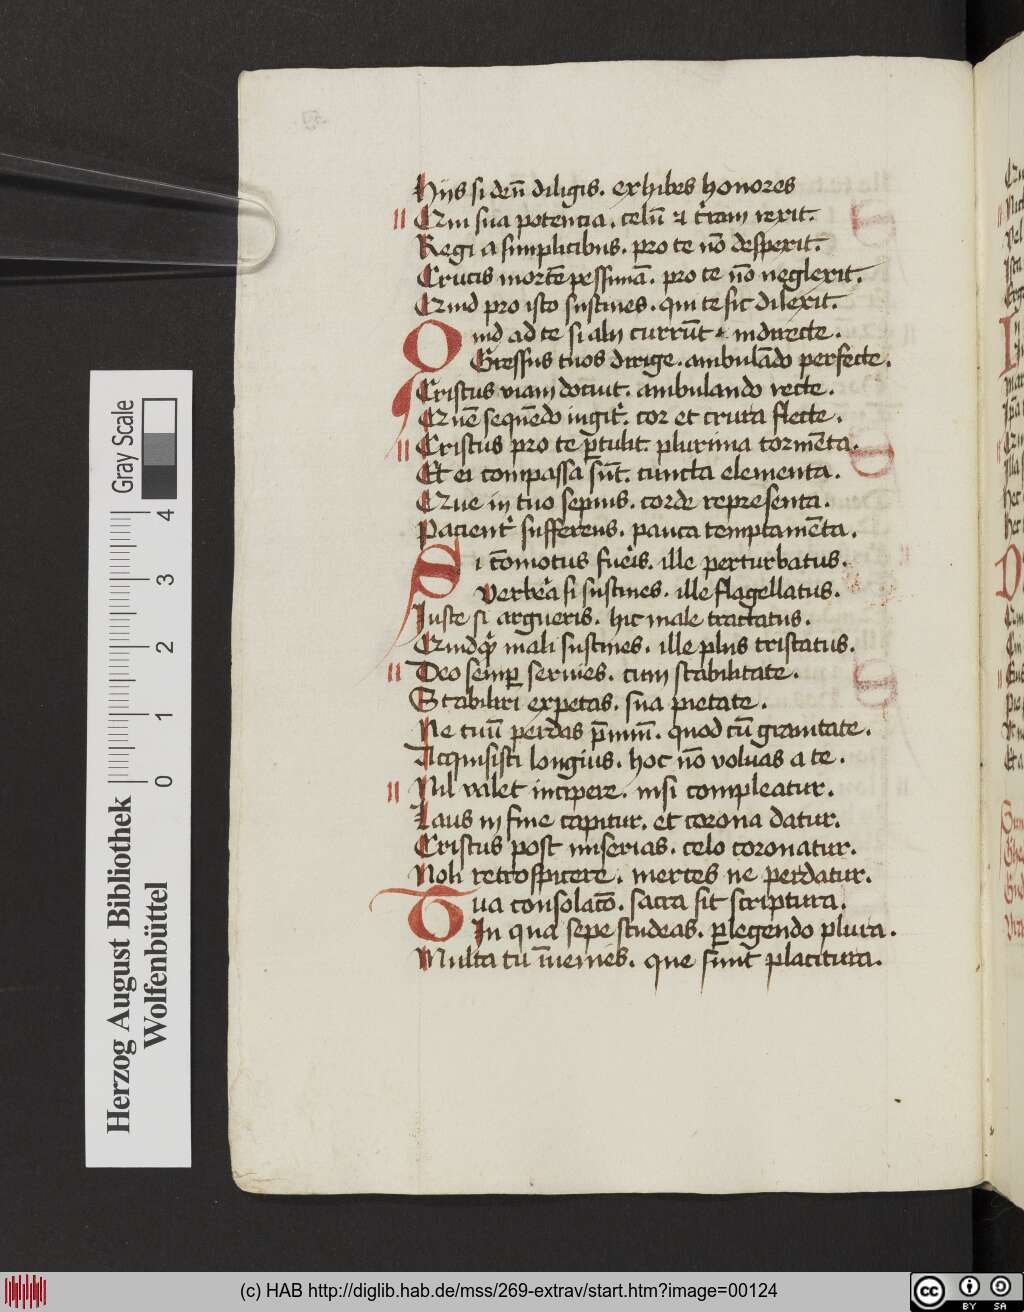 Hiis si deū diligis. exhibes honores
Qui sua potencia. celū et t'ram rexit.
Regi a simplicibus. pro te nō despexit.
Crucis mortē pessimā. pro te nō neglexit.
Quid pro isto sustines. qui te sic dilexit.
Quid ad te si alij currūt indirecte.
Gressus tuos dirige. ambulādo perfecte.
Cristus viam docuit. ambulando recte.
Quē sequēdo iugit'. cor et crura flecte.
Cristus pro te ꝑtulit plurima tormēta.
Et ei compassa sūt. cuncta elementa.
Que in tuo sepius. corde representa.
Pacient' sufferens. pauca temptamēta.
Si cōmotus fue'is. ille perturbatus.
Verbe'a si sustines. ille flagellatus.
Iuste si argueris. hic male tractatus.
Quidq' mali sustines. ille plus tristatus.
Deo semꝑ seruies. cum stabilitate.
Stabiliri expetas. sua pietate.
Ne tuū perdas p̄miū. quod cū grauitate.
Acquisisti longius. hoc nō voluas a te.
Nil valet incipere. nisi compleatur.
Laus in fine capitur. et corona datur.
Cristus post miserias. celo coronatur.
Noli retrospicere. mertes ne perdatur.
Tua consolacō. sacra sit scriptura.
In qua sepe studeas. ꝑlegendo plura.
Multa tu īuenies. que sunt placitura.
Gray Scale
0 1 2 3 4
Herzog August Bibliothek
Wolfenbüttel
(c) HAB http://diglib.hab.de/mss/269-extrav/start.htm?image=00124
cc BY SA